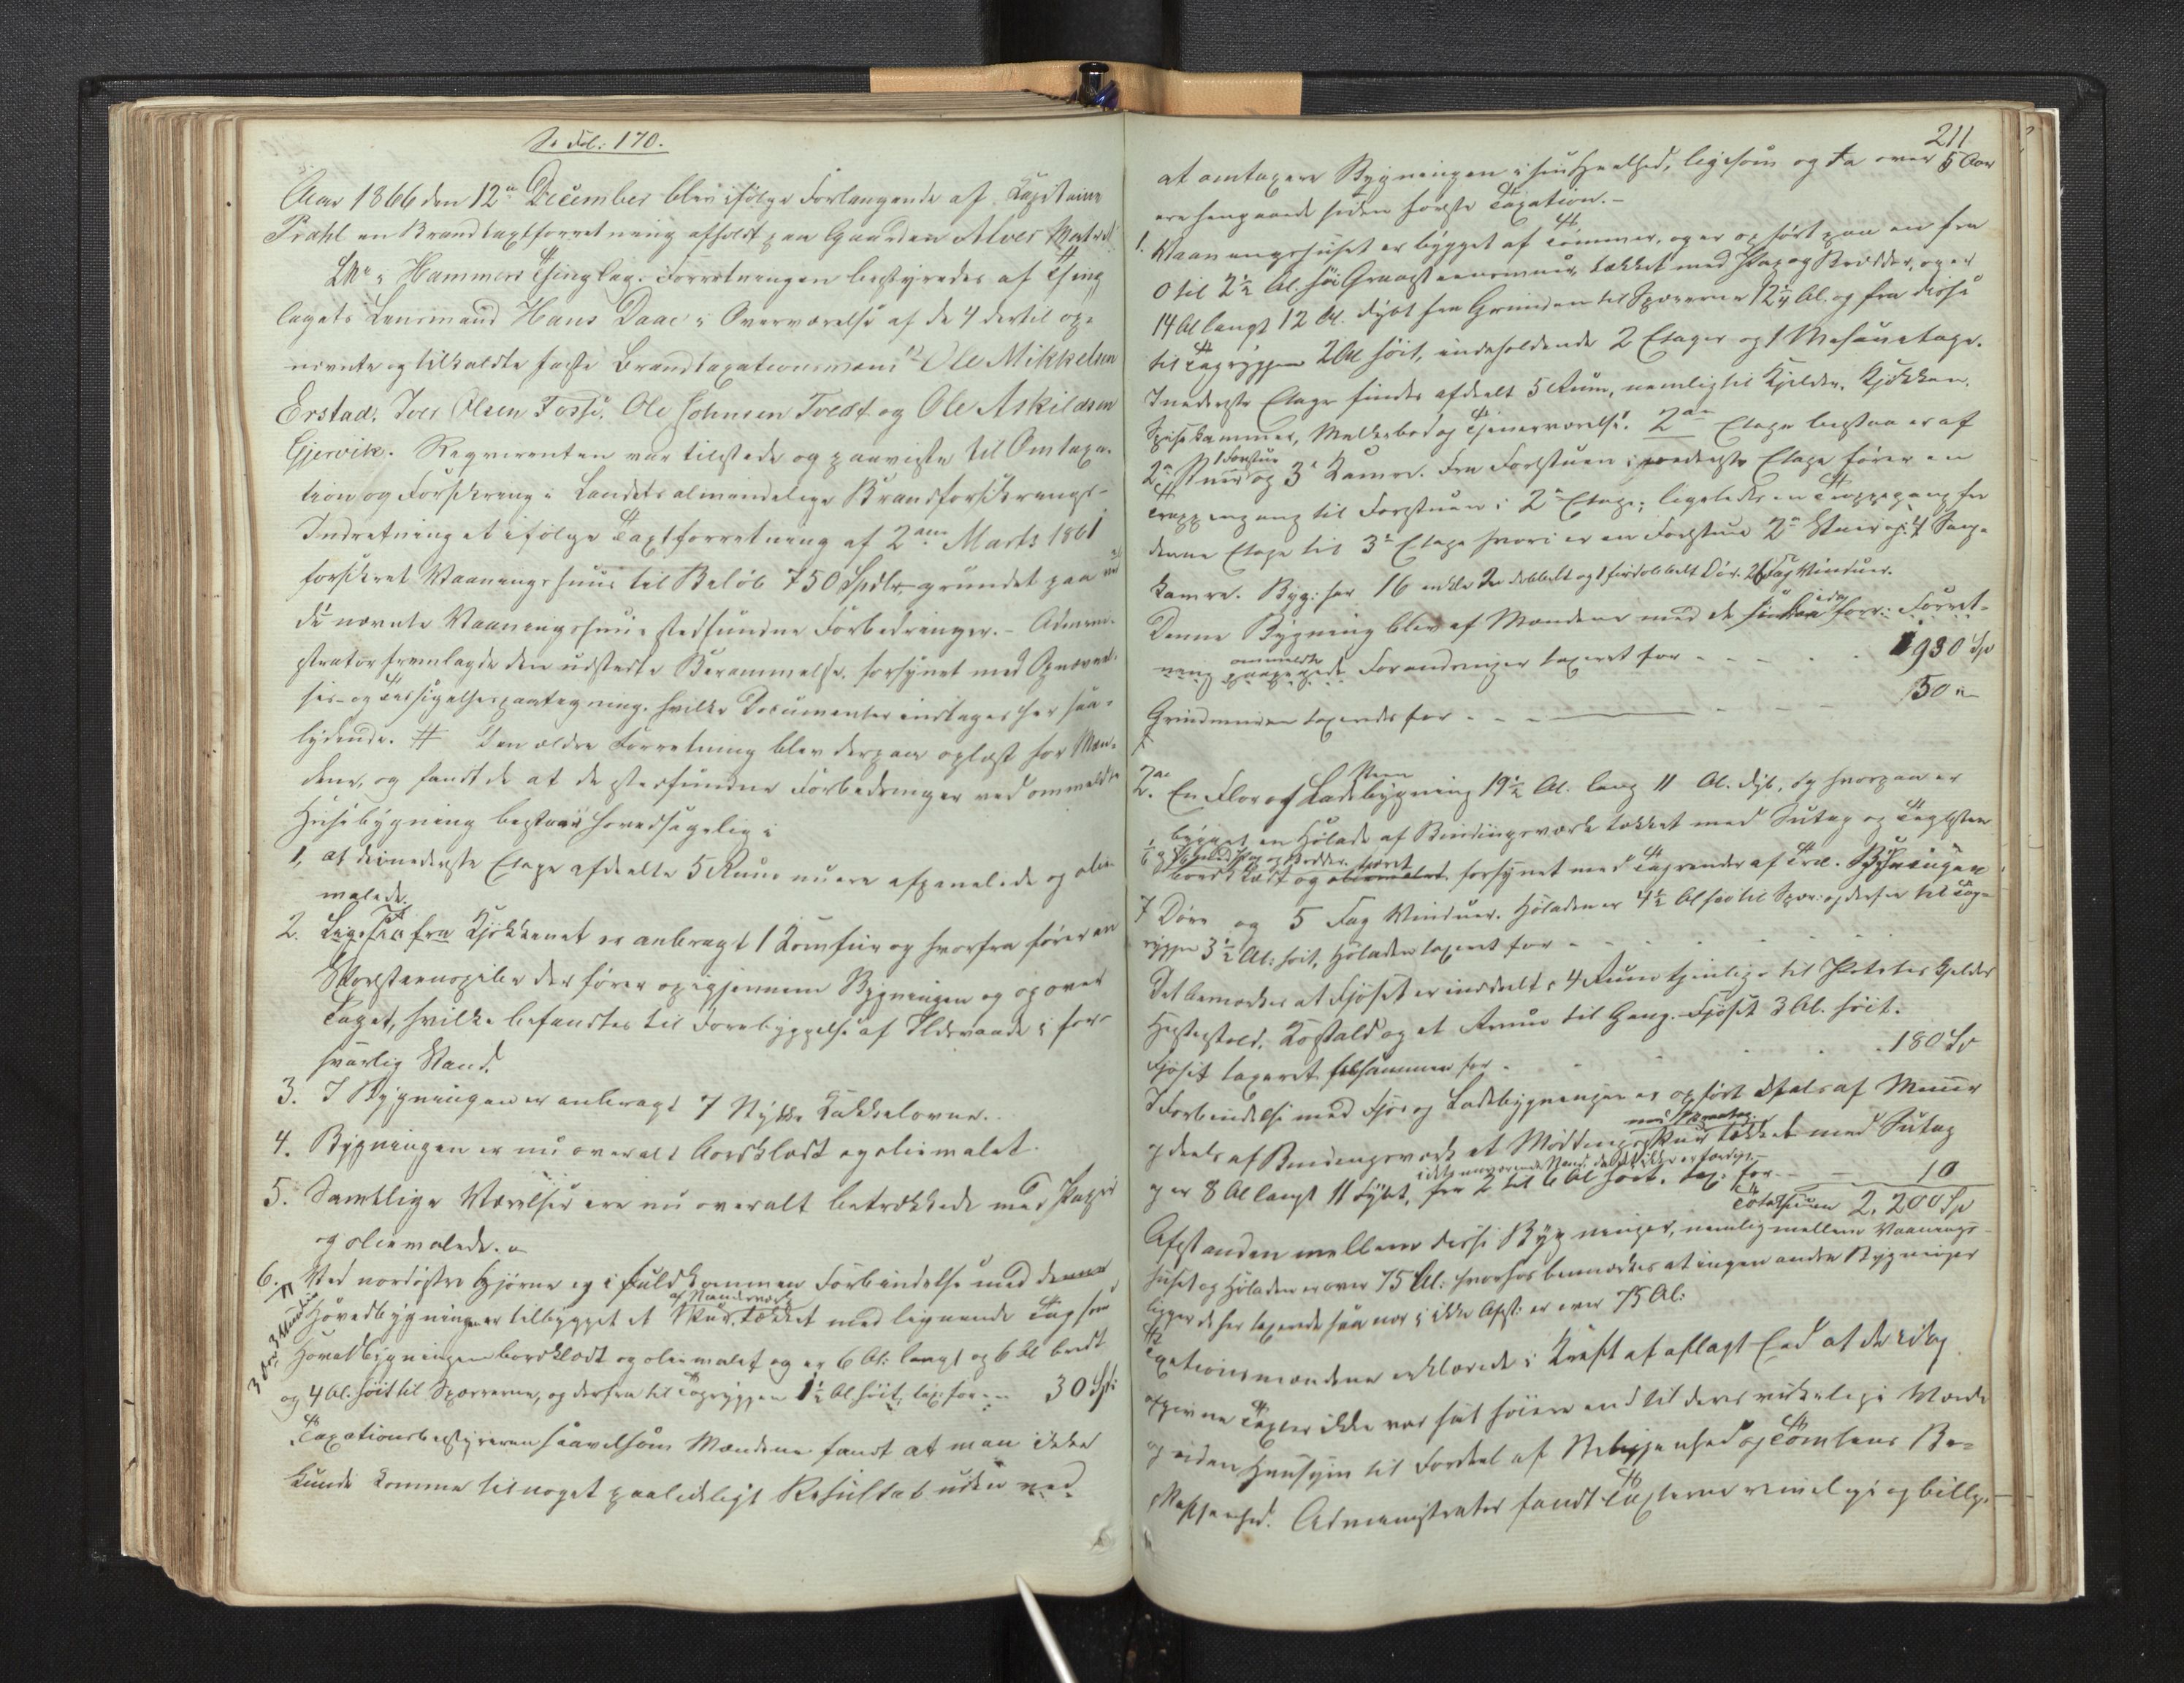 Se Fol: 170.
Aar 1866 den 12te December blev ifølge Forlangende af Kapitaine
Prahl en Brandtaxtforretning afholdt paa Gaarden Alver Matr
LNo i Hammers Thinglag. Forretningen bestyredes af Thing
lagets Lensmand Hans Daae i Overværelse af de 4 dertil op-
nævnte og tilkaldte faste Brandtaxationsmænd Ole Mikkelsen
Erstad, Iver Olsen Fosse, Ole Johnsen Tvedt og Ole Askildsen
Gjervik. Reqvirenten var tilstede og paaviste til Omtaxa-
tion og Forsikring i Landets almindelige Brandforsikrings-
Indretning et ifølge Taxtforretning af 2den Marts 1861
forsikret Vaaningshuus til Beløb 750 Spdlr grundet paa ved
de nævnte Vaaningshuus stedfundne Forbedringer. - Admini-
strator fremlagde den udstedte Berammelse, forsynet med Opnævnel-
ses- og Tilsigelsespaategning, hvilke Documenter indtages her saa-
lydende. # Den ældre Forretning blev derpaa oplæst for Mæn-
dene, og fandt de at de stedfundne Forbedringer ved ommeldte
Huusebygning bestaar hovedsagelig i
1, at de i nederste Etage afdeelte 5 Rum nu ere afpanelede og olie
malede.
2. Kjøkkenet er anbragt 1 Komfur og hvorfra fører en
Skorsteenspibe der fører op igjennem Bygningen og op over
Taget, hvilke befandtes til Forebyggelse af Ildsvaade i for-
svarlig Stand.
3. I Bygningen er anbragt 7 Stykke Kakkelovne.
4. Bygningen er nu overalt bordklædt og oliemalet.
5. Samtlige Værelser ere nu overalt betrækkede med Papir
og oliemalede.
6. Ved nordøstre Hjørne og i fuldkommen Forbindelse med denne
af Bindværk
Hovedbygningen er tilbygget et Skur, tækket med lignende Tag som
Hovedbygningen bordklædt og oliemalet og er 6 Al: langt og 6 Al bredt
og 4 Al: høit til Sparrerne, og derfra til Tagryggen 1½ Al høit, tax: for - - 30 Sp:
Taxationsbestyreren saavelsom Mændene fandt at man ikke
kunde komme til noget paalideligt Resultat uden ved
211
at omtaxere Bygningen i sin Heelhed, ligesom og da over 5 Aar
ere hengaaede siden første Taxation. -
1. Vaaningshuset er bygget af Tømmer, og er opført paa en fra
0 til 2½ Al. høi Graasteensmuur, tækket med Steen og Brædder, og er
14 Al langt 12 Al. dybt fra Grunden til Sparrerne 12¼ Al, og fra disse
til Tagryggen 2 Al høit, indeholdende 2 Etager og 1 Mesanetage.
I nederste Etage findes afdeelt 5 Rum, nemlig til Kjelder, Kjøkken,
Spisekammer, Melkebod og Tjenerværelse. 2den Etage bestaaer af
1 Forstue
2de Stuer og 3e Kamre. Fra Forstuen i nederste Etage fører en
Trappegang til Forstuen i 2den Etage; ligeledes en Trappegang fra
denne Etage til 3die Etage hvori er en Forstue 2de Stuer og 4 Senge
Kamre. Byg: har 16 enkle 2 dobbelt og 1 firdobbelt Dør. 26 Fag Vinduer.
Denne Bygning blev af Mændene med de siden forr: Forret-
ning ommeldte Forandringer taxeret for - - - - 1,930 Sp
Grundmuren taxeredes for - - - - 50 "
2. En Flor og Ladebygning 19½ Al. lang 11 Al. dyb, og hvorpaa er
Steen
bygget en Hølade af Bindingsværk tækket med Sutag og Taglsten
bordklædt og forsynet med Tagrender af Træ. Bygningen
7 Døre og 5 Fag Vinduer. Høladen er 4½ Al høi til Spær: og derfra til Tag-
ryggen 3½ Al: høit, Høladen taxeret for - - - -
Det bemærkes at Fjøset er inddeelt i 4 Rum tjenlige til Potetes Kjelder
Hestestald, Kostald og et Rum til Gang. Fjøset 3 Al. høit.
Fjøset taxeret tilsammen for - - - - 180 Sp
I Forbindelse med Fjøs og Ladebygningen er opført dels af Muur
og deels af Bindingsværk et Møddingsskur tækket med Sutag
og er 8 Al langt 11 dybt, fra 2 til 6 Al høit, tax: for - - 10
Totalsum 2,200 Sp
Afstanden mellem disse Bygninger, nemlig mellem Vaanings-
huset og Høladen er over 75 Al: hvorhos bemærkes at ingen andre Bygninger
ligger de her taxerede saa nær i ikke Afst: er over 75 Al:
Taxationsmændene erklærede i Kraft af aflagt Eed at de idag
afgivne Taxter ikke var sat høiere end til deres virkelige Værdi
og uden Hensyn til Fordeel af Beliggenhed og Tomtens Be-
skaffenhed. Administrator fandt Taxterne rimelige og billige